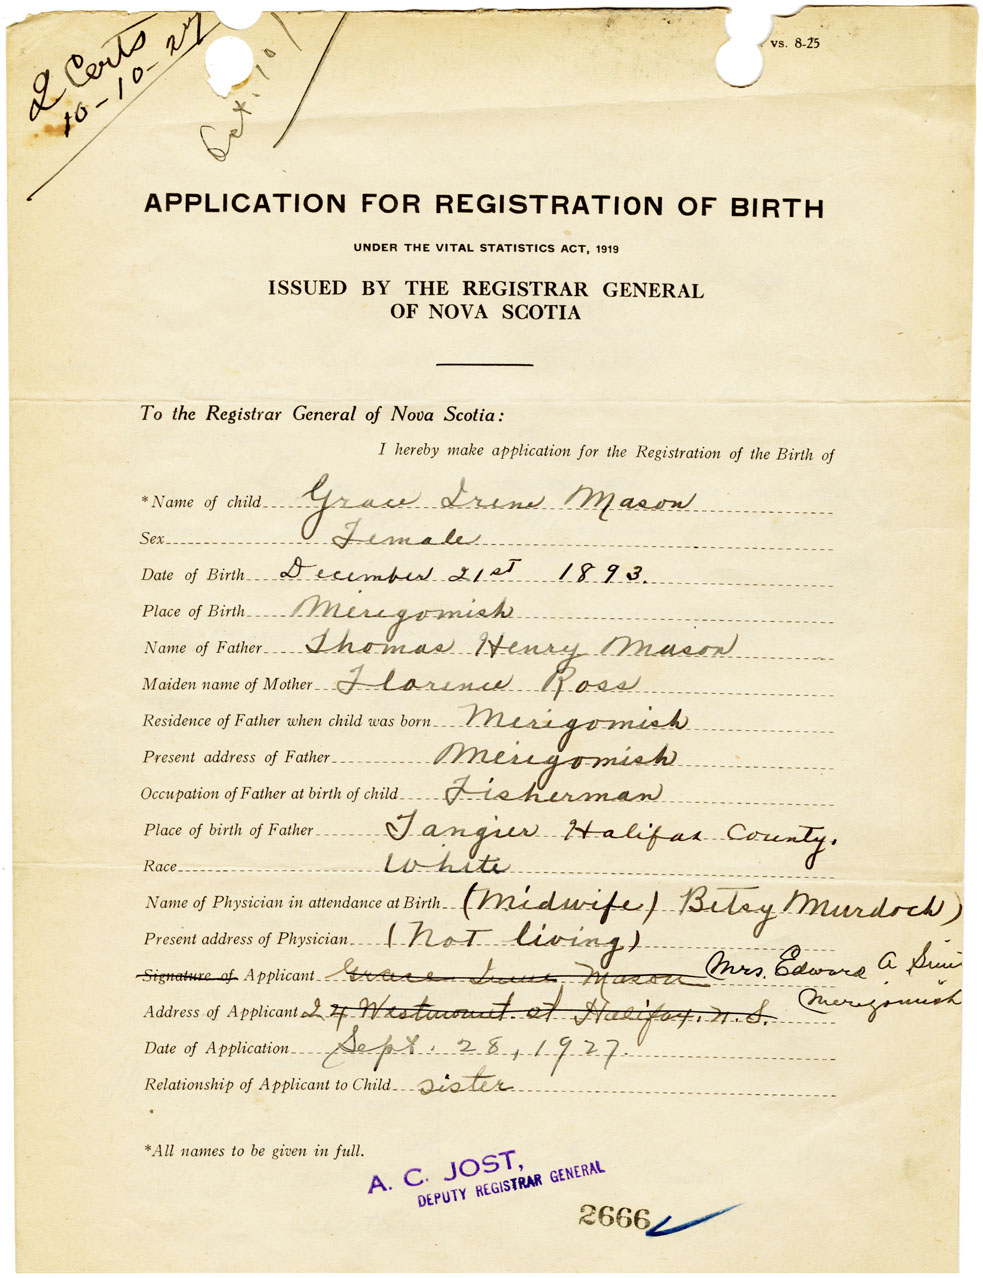 2 Certs
10-10-27
Oct. 10
vs. 8-25
APPLICATION FOR REGISTRATION OF BIRTH
UNDER THE VITAL STATISTICS ACT, 1919
ISSUED BY THE REGISTRAR GENERAL
OF NOVA SCOTIA
To the Registrar General of Nova Scotia:
I hereby make application for the Registration of the Birth of
*Name of child Grace Irene Mason
Sex Female
Date of Birth December 21st 1893.
Place of Birth Merigomish
Name of Father Thomas Henry Mason
Maiden name of Mother Florence Ross
Residence of Father when child was born Merigomish
Present address of Father Merigomish
Occupation of Father at birth of child Fisherman
Place of birth of Father Tangier Halifax County.
Race White
Name of Physician in attendance at Birth (Midwife) Betsy Murdoch)
Present address of Physician (Not living)
Signature of Applicant Grace Irene Mason Mrs. Edward A
Merigomish
Address of Applicant 24 Westmount st Halifax. N.S.
Date of Application Sept. 28, 1927.
Relationship of Applicant to Child sister
*All names to be given in full.
A. C. JOST,
DEPUTY REGISTRAR GENERAL
2666